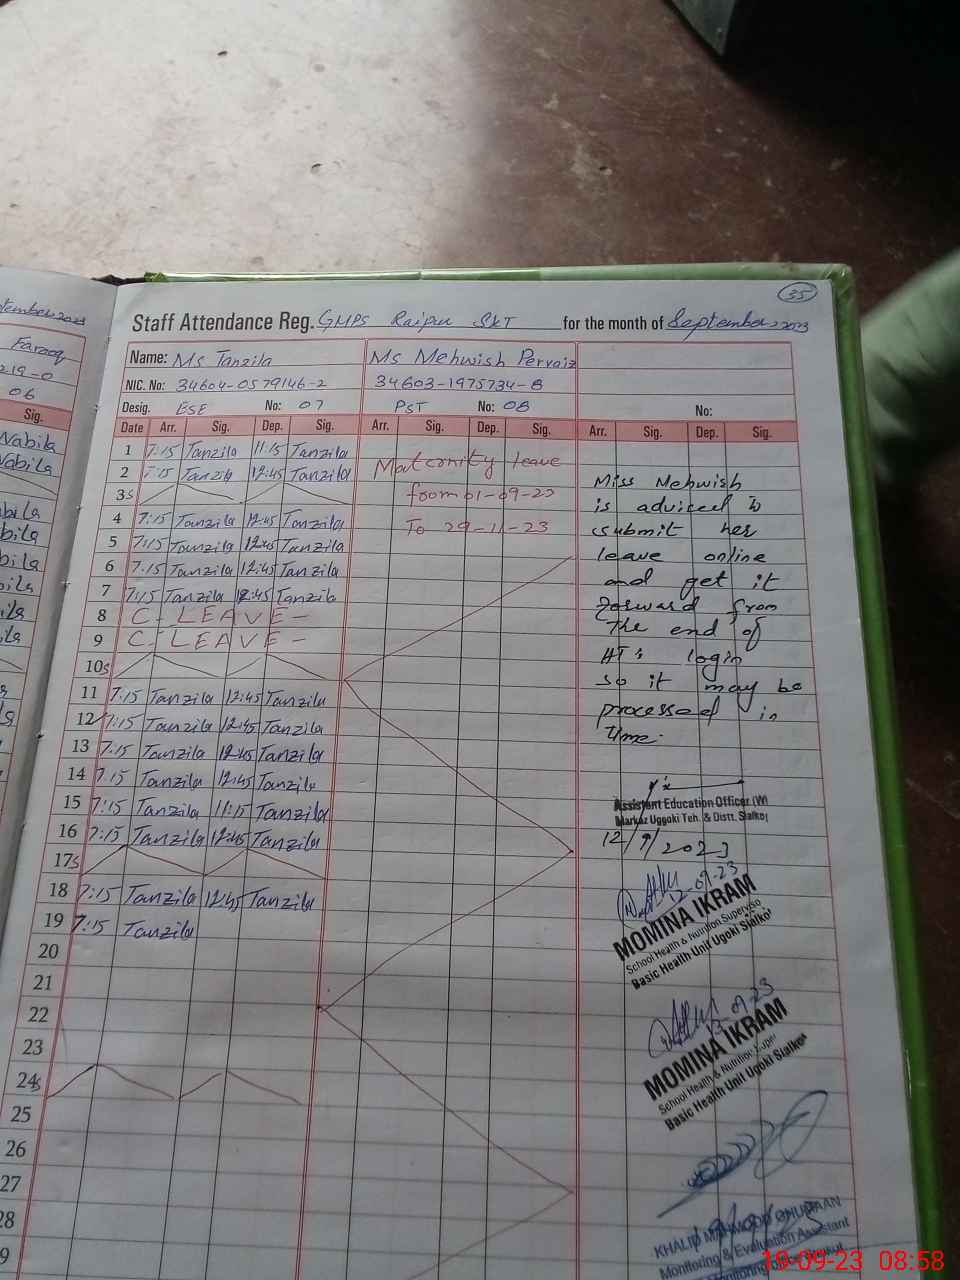 35
Staff Attendance Reg. GMPS Raipur SKT for the month of September, 2023
Name: Ms Tanzila Ms Mehwish Pervaiz
NIC. No: 34604-0579146-2 34603-1975734-8
Desig. ESE No: 07 PST No: 08 No:
Date Arr. Sig. Dep. Sig. Arr. Sig. Dep. Sig. Arr. Sig. Dep. Sig.
1 7:15 Tanzila 11:15 Tanzila
2 7:15 Tanzila 12:45 Tanzila
3 S
4 7:15 Tanzila 12:45 Tanzila
5 7:15 Tanzila 12:45 Tanzila
6 7:15 Tanzila 12:45 Tanzila
7 7:15 Tanzila 12:45 Tanzila
8 C-LEAVE-
9 C-LEAVE-
10 S
11 7:15 Tanzila 12:45 Tanzila
12 7:15 Tanzila 12:45 Tanzila
13 7:15 Tanzila 12:45 Tanzila
14 7:15 Tanzila 12:45 Tanzila
15 7:15 Tanzila 11:15 Tanzila
16 7:15 Tanzila 12:45 Tanzila
17 S
18 7:15 Tanzila 12:45 Tanzila
19 7:15 Tanzila
20
21
22
23
24 S
25
26
27
28
9
Maternity leave
from 01-09-23
To 29-11-23
Miss Mehwish
is adviced to
submit her
leave online
and get it
forward from
the end of
HT's login
so it may be
processed in
time.
Assistant Education Officer (W)
Markaz Uggoki Teh. & Distt. Sialkot
12/9/2023
12-09-23
MOMINA IKRAM
School Health & Nutrition Superviso
Basic Health Unit Ugoki Sialkot
13-09-23
MOMINA IKRAM
School Health & Nutrition Super
Basic Health Unit Ugoki Sialkot
KHALID MAHMOOD
Monitoring & Evaluation Assistant
19-09-23 08:58
tember 2023
Farooq
219-0
06
Sig.
Nabila
Nabila
bila
bila
bila